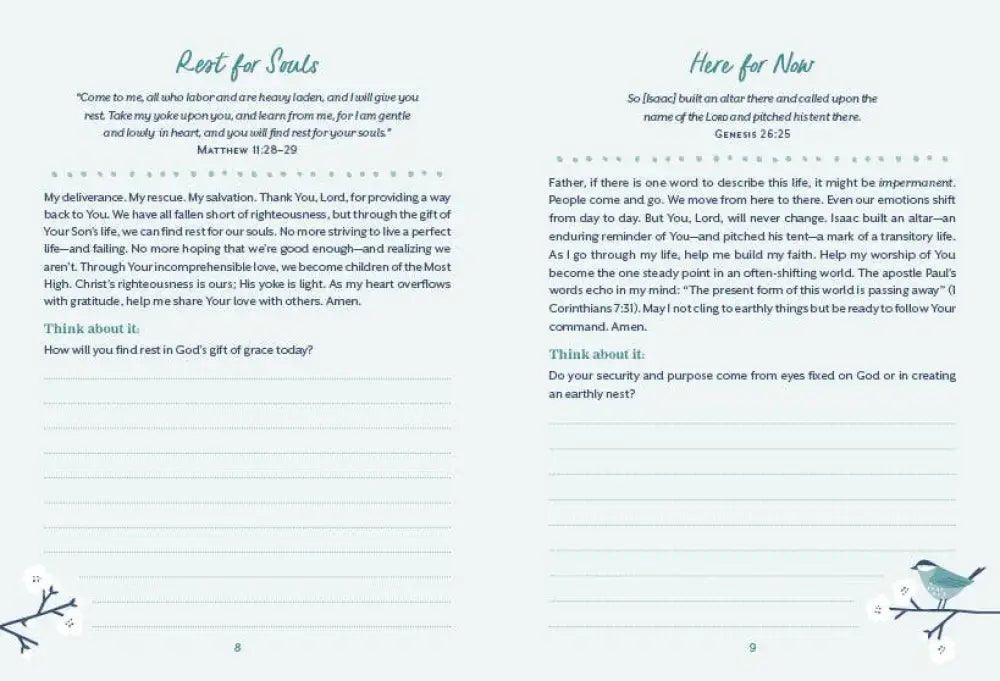 Rest for Souls
"Come to me, all who labor and are heavy laden, and I will give you
rest. Take my yoke upon you, and learn from me, for I am gentle
and lowly in heart, and you will find rest for your souls."
MATTHEW 11:28–29
My deliverance. My rescue. My salvation. Thank You, Lord, for providing a way
back to You. We have all fallen short of righteousness, but through the gift of
Your Son's life, we can find rest for our souls. No more striving to live a perfect
life—and failing. No more hoping that we're good enough—and realizing we
aren't. Through Your incomprehensible love, we become children of the Most
High. Christ's righteousness is ours; His yoke is light. As my heart overflows
with gratitude, help me share Your love with others. Amen.
Think about it:
How will you find rest in God's gift of grace today?
8
Here for Now
So [Isaac] built an altar there and called upon the
name of the LORD and pitched his tent there.
GENESIS 26:25
Father, if there is one word to describe this life, it might be impermanent.
People come and go. We move from here to there. Even our emotions shift
from day to day. But You, Lord, will never change. Isaac built an altar—an
enduring reminder of You—and pitched his tent—a mark of a transitory life.
As I go through my life, help me build my faith. Help my worship of You
become the one steady point in an often-shifting world. The apostle Paul's
words echo in my mind: "The present form of this world is passing away" (1
Corinthians 7:31). May I not cling to earthly things but be ready to follow Your
command. Amen.
Think about it:
Do your security and purpose come from eyes fixed on God or in creating
an earthly nest?
9